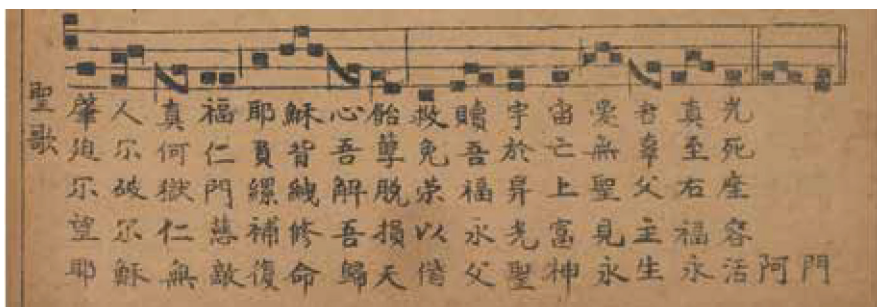 聖歌
肇人真福耶穌心飴救贖宇宙愛者真光
廹尔何仁負皆吾孽免吾於亡無辜至死
尔破獄門縲絏解脫荣福昇上聖父右座
望尔仁慈補修吾損以永光富見主福容
耶穌無敵復命歸天偕父聖神永生永活阿門